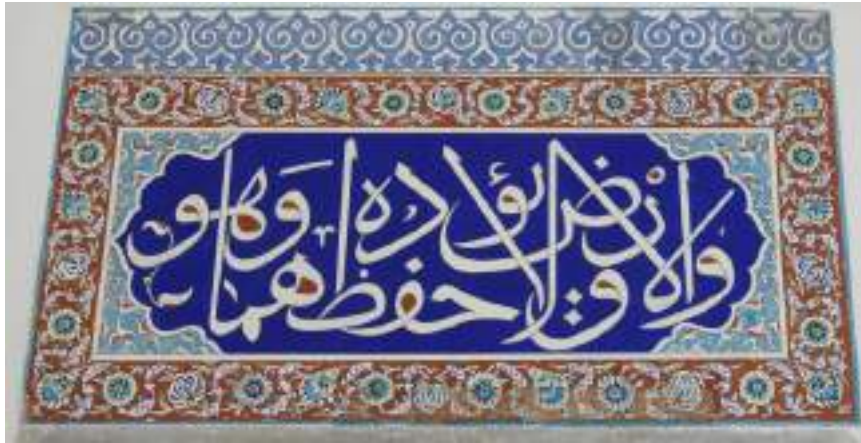 والارض ولا يؤده حفظهما وهو